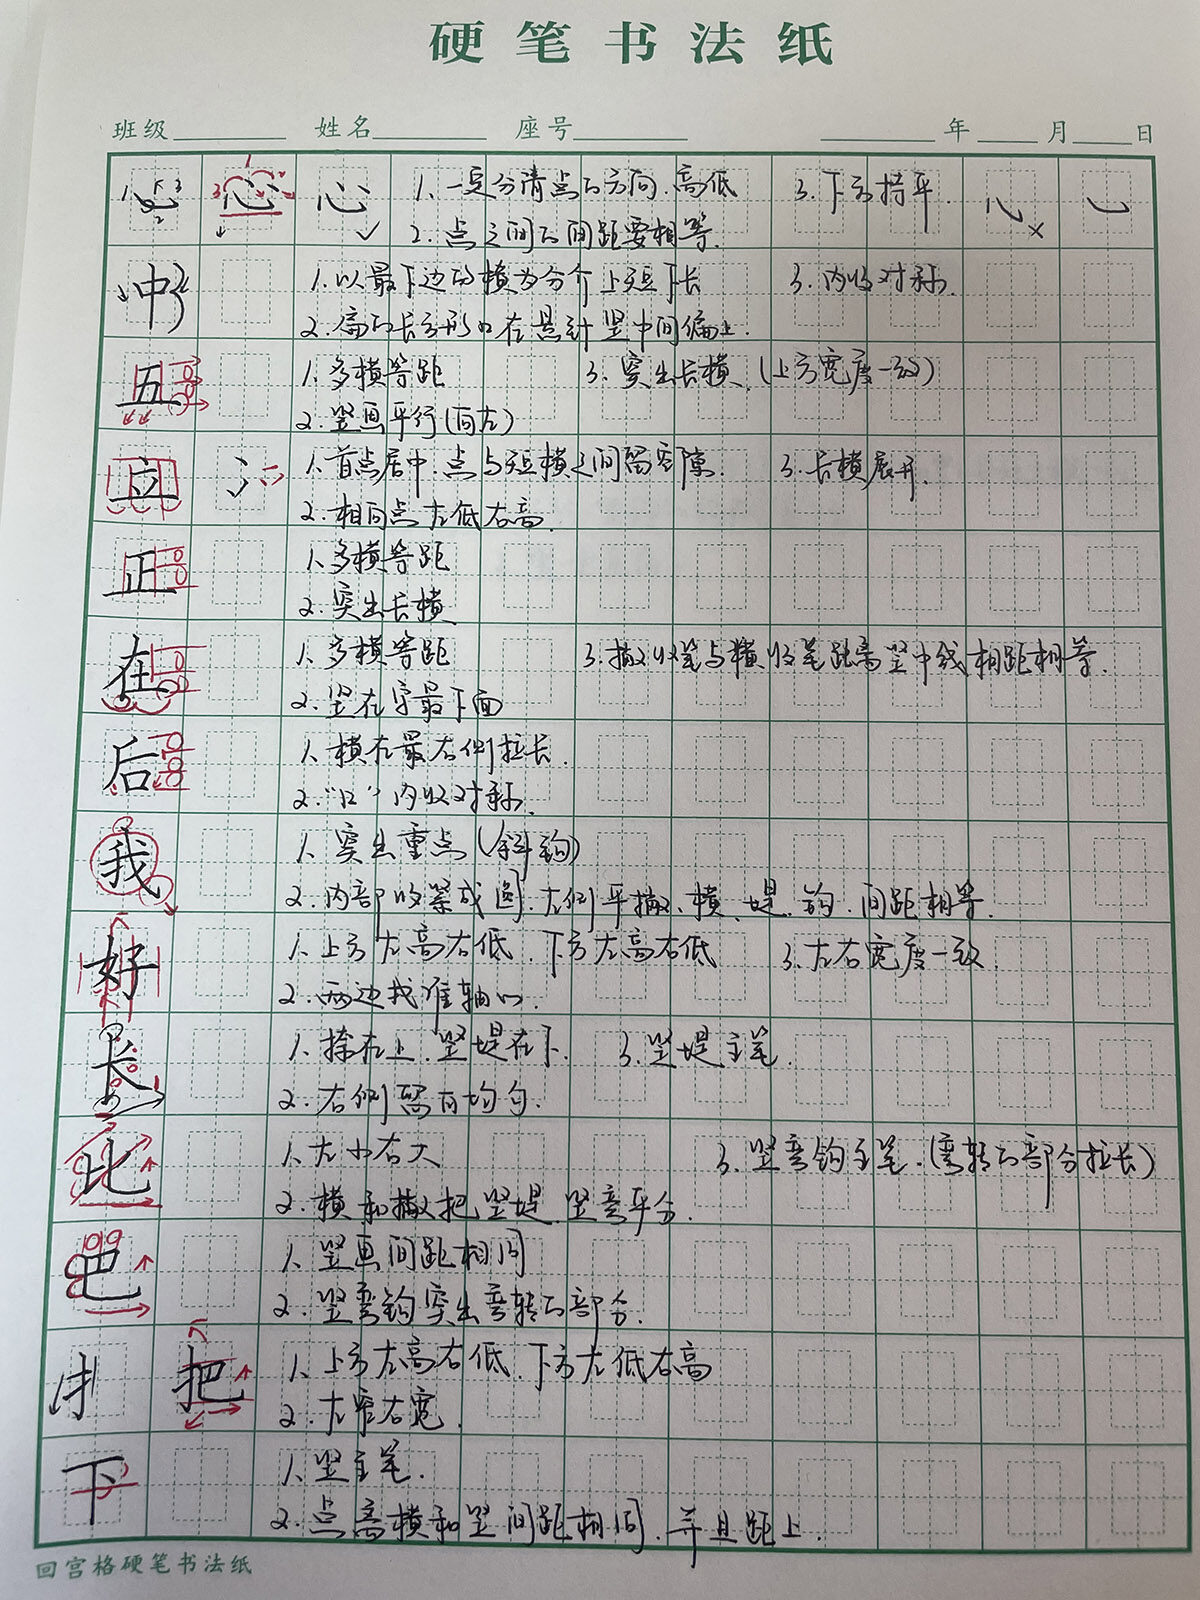 硬笔书法纸
班级 姓名 座号 年 月 日
心 心 心 1. 一定分清点的方向、高低 3. 下方持平.
2. 点之间的间距要相等.
中 1. 以最下边的横为分介上短下长 3. 内收对称.
2. 扁的长方形口在悬针竖中间偏上.
五 1. 多横等距 3. 突出长横 (上方宽度一致)
2. 竖画平行(向左)
立 1. 首点居中.点与短横之间留空隙. 3. 长横展开.
2. 相向点左低右高.
正 1. 多横等距
2. 突出长横
在 1. 多横等距 3. 撇收笔与横收笔距离竖中线相距相等.
2. 竖在字最下面
后 1. 横在最右侧拉长.
2. “口”内收对称.
我 1. 突出重点 (斜钩)
2. 内部收紧成圆.左侧平撇、横、堤、钩.间距相等.
好 1. 上方左高右低.下方左高右低 3. 左右宽度一致
2. 两边找准轴心.
长 1. 捺在上.竖堤在下. 3. 竖堤主笔.
2. 右侧留白均匀.
比 1. 左小右大 3. 竖弯钩主笔.(弯转的部分拉长)
2. 横和撇把竖堤.竖弯平分.
吧 1. 竖画间距相同
2. 竖弯钩突出弯转的部分.
扌 把 1. 上方左高右低.下方左低右高
2. 左窄右宽.
下 1. 竖主笔.
2. 点离横和竖间距相同.并且距上.
回宫格硬笔书法纸